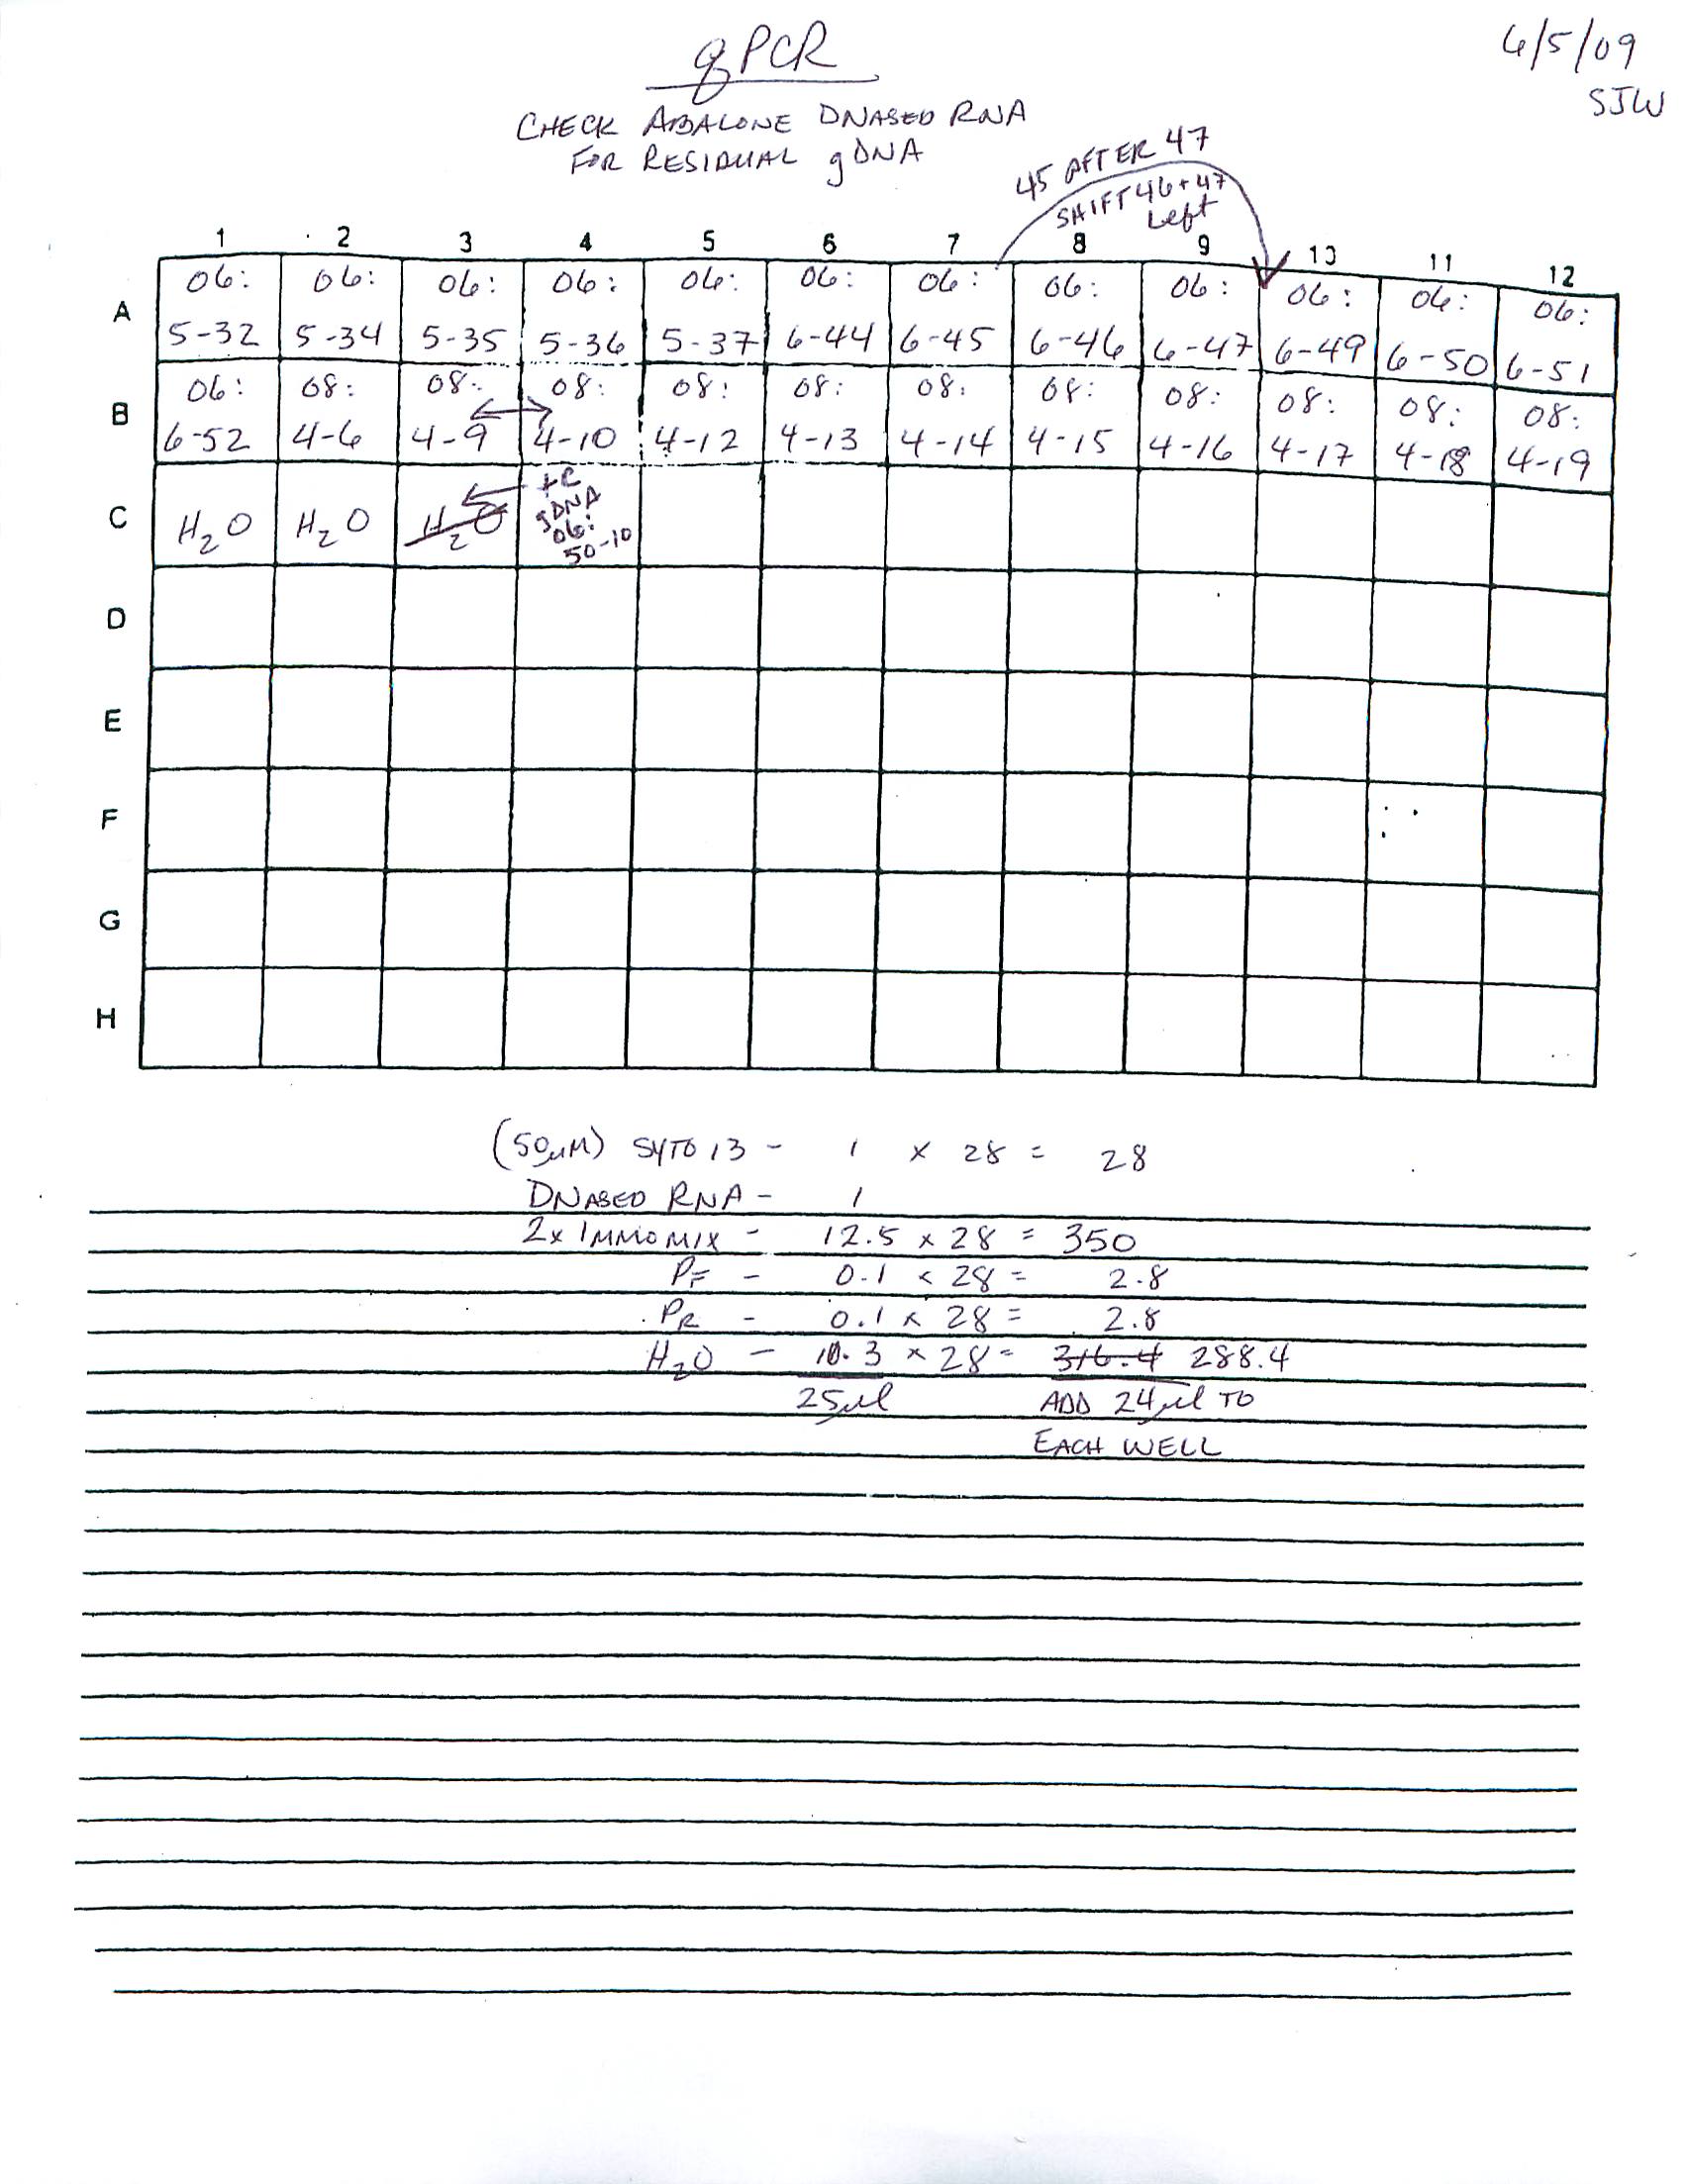 qPCR
6/5/09
SJW
CHECK ABALONE DNASED RNA
FOR RESIDUAL gDNA
45 AFTER 47
SHIFT 46+47
Left
1 2 3 4 5 6 7 8 9 13 11 12
A 06: 06: 06: 06: 06: 06: 06: 06: 06: 06: 06: 06:
5-32 5-34 5-35 5-36 5-37 6-44 6-45 6-46 6-47 6-49 6-50 6-51
B 06: 08: 08: 08: 08: 08: 08: 08: 08: 08: 08: 08:
6-52 4-6 4-9 4-10 4-12 4-13 4-14 4-15 4-16 4-17 4-18 4-19
C H2O H2O H2O +C
gDNA
06:
50-10
D
E
F
G
H
(50µM) SYTO 13 - 1 x 28 = 28
DNASED RNA - 1
2x IMMOMIX - 12.5 x 28 = 350
PF - 0.1 x 28 = 2.8
PR - 0.1 x 28 = 2.8
H2O - 10.3 x 28 = 316.4 288.4
25µl ADD 24µl TO
EACH WELL